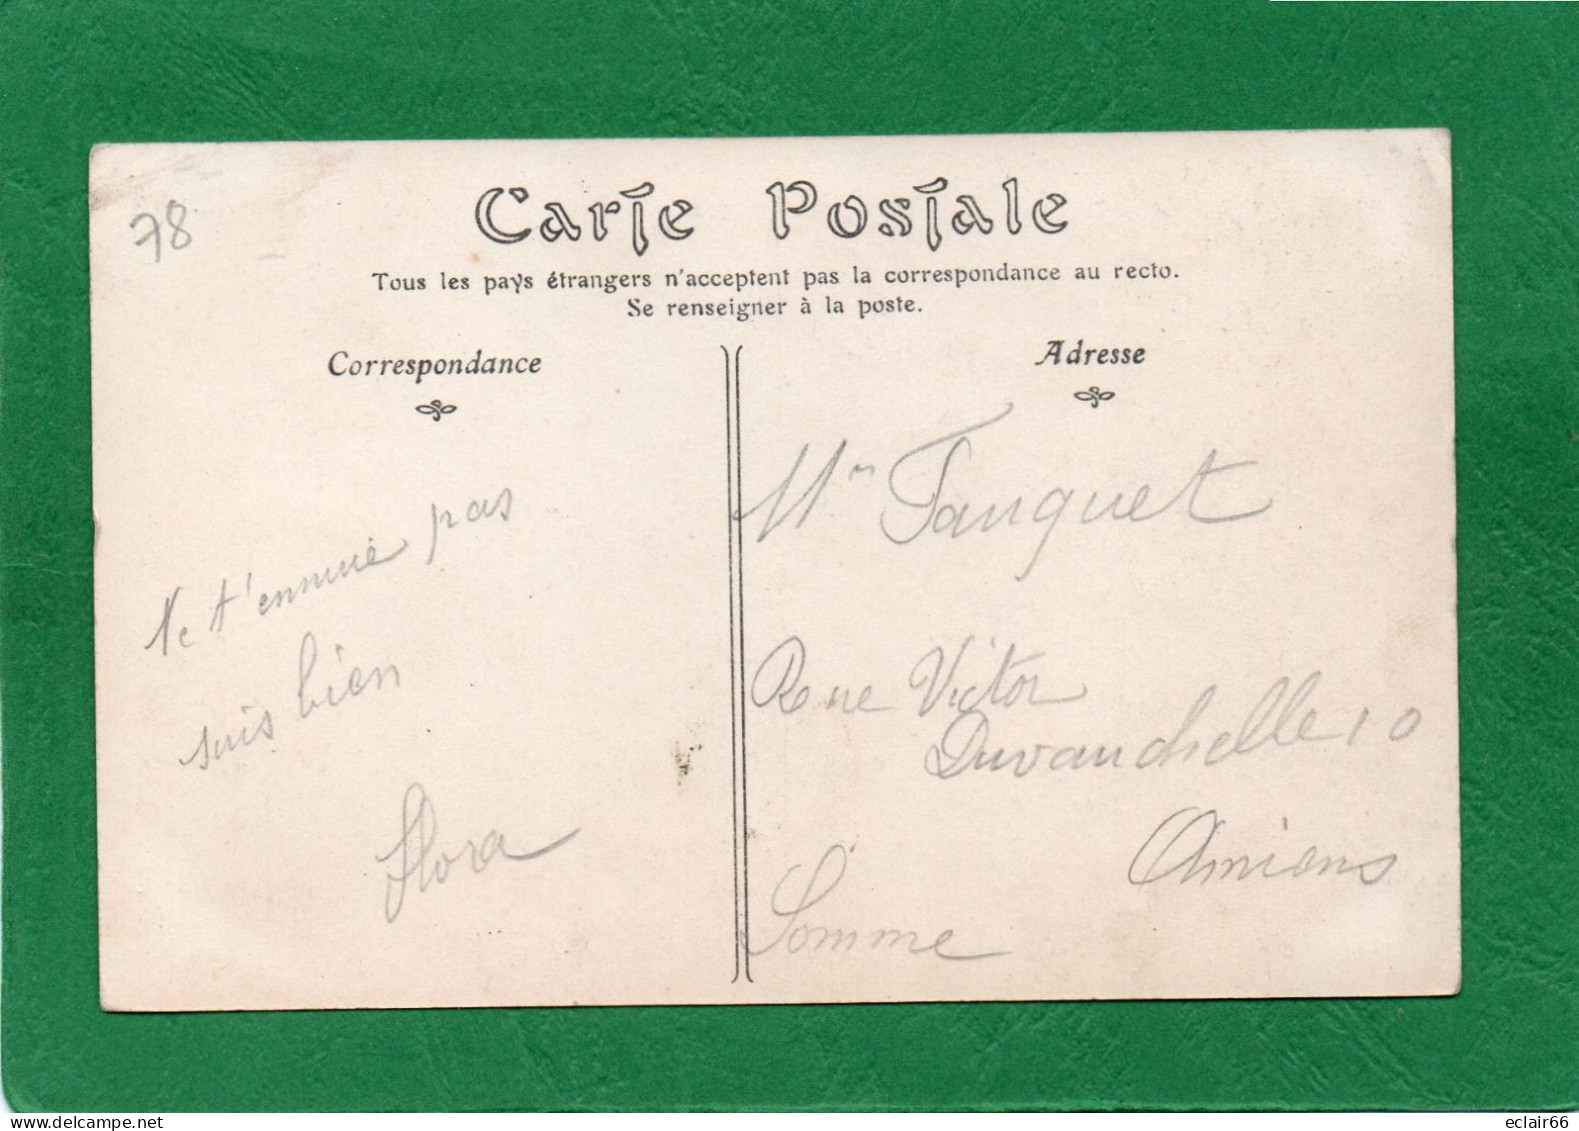 78
Carte Postale
Tous les pays étrangers n'acceptent pas la correspondance au recto.
Se renseigner à la poste.
Correspondance
Ne t'ennuie pas
suis bien
Flora
Adresse
Mr Fauquet
Rue Victor
Duvauchelle 10
Amiens
Somme
eclair66